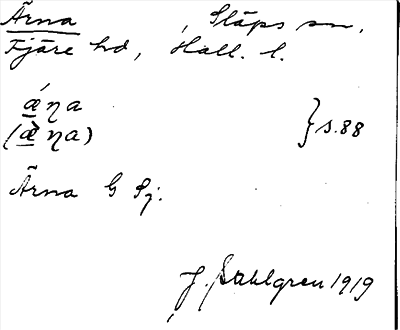 Ärna , Släps sn,
Fjäre hd, Hall. l.
ǽƞa
(æ̀ƞa) } s. 88
Ärna G Sj.
J. Dahlgren 1919